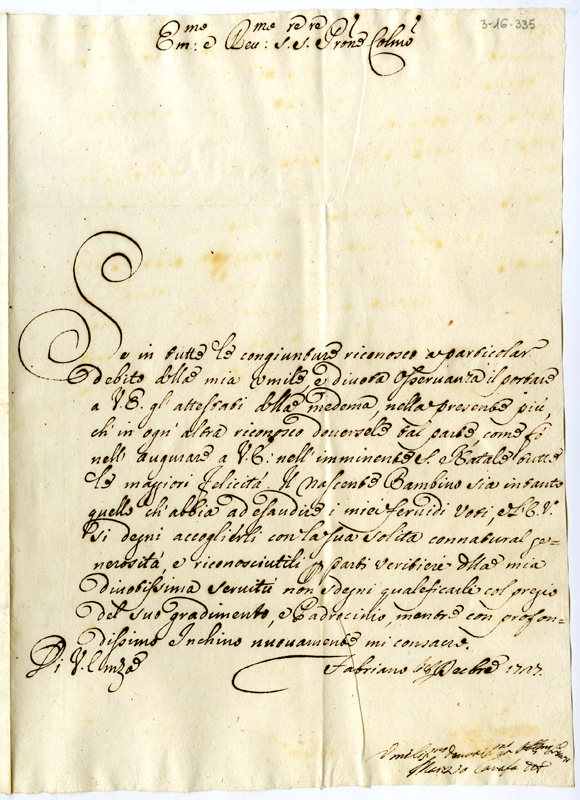 3-16-335
Em:me e Reu:me S.re S.re Prone Colmo
Se in tutte le congiunture riconosco a particolar
debito della mia umile, e diuota Osseruanza il portare
a V.E. gl'attestati della medema, nella presente più,
ch'in ogn'altra riconosco douersele tal parte, come fò
nell'augurare a V.E: nell'imminente S. Natale tutte
le maggiori felicità. Il Nascente Bambino sia intanto
quello ch'abbia ad esaudire i miei feruidi Voti, e l'E.V.
si degni accoglierli con la sua solita connatural ge=
nerosità, e riconosciutili parti veritieri della mia
diuotissima seruitù non sdegni qualeficarli col pregio
del suo gradimento, e Padrocinio, mentre con profon=
dissimo Inchino nuouamente mi consacro.
Di V. Emza
Fabriano Decbre 1727.
Umilissmo
Carafa